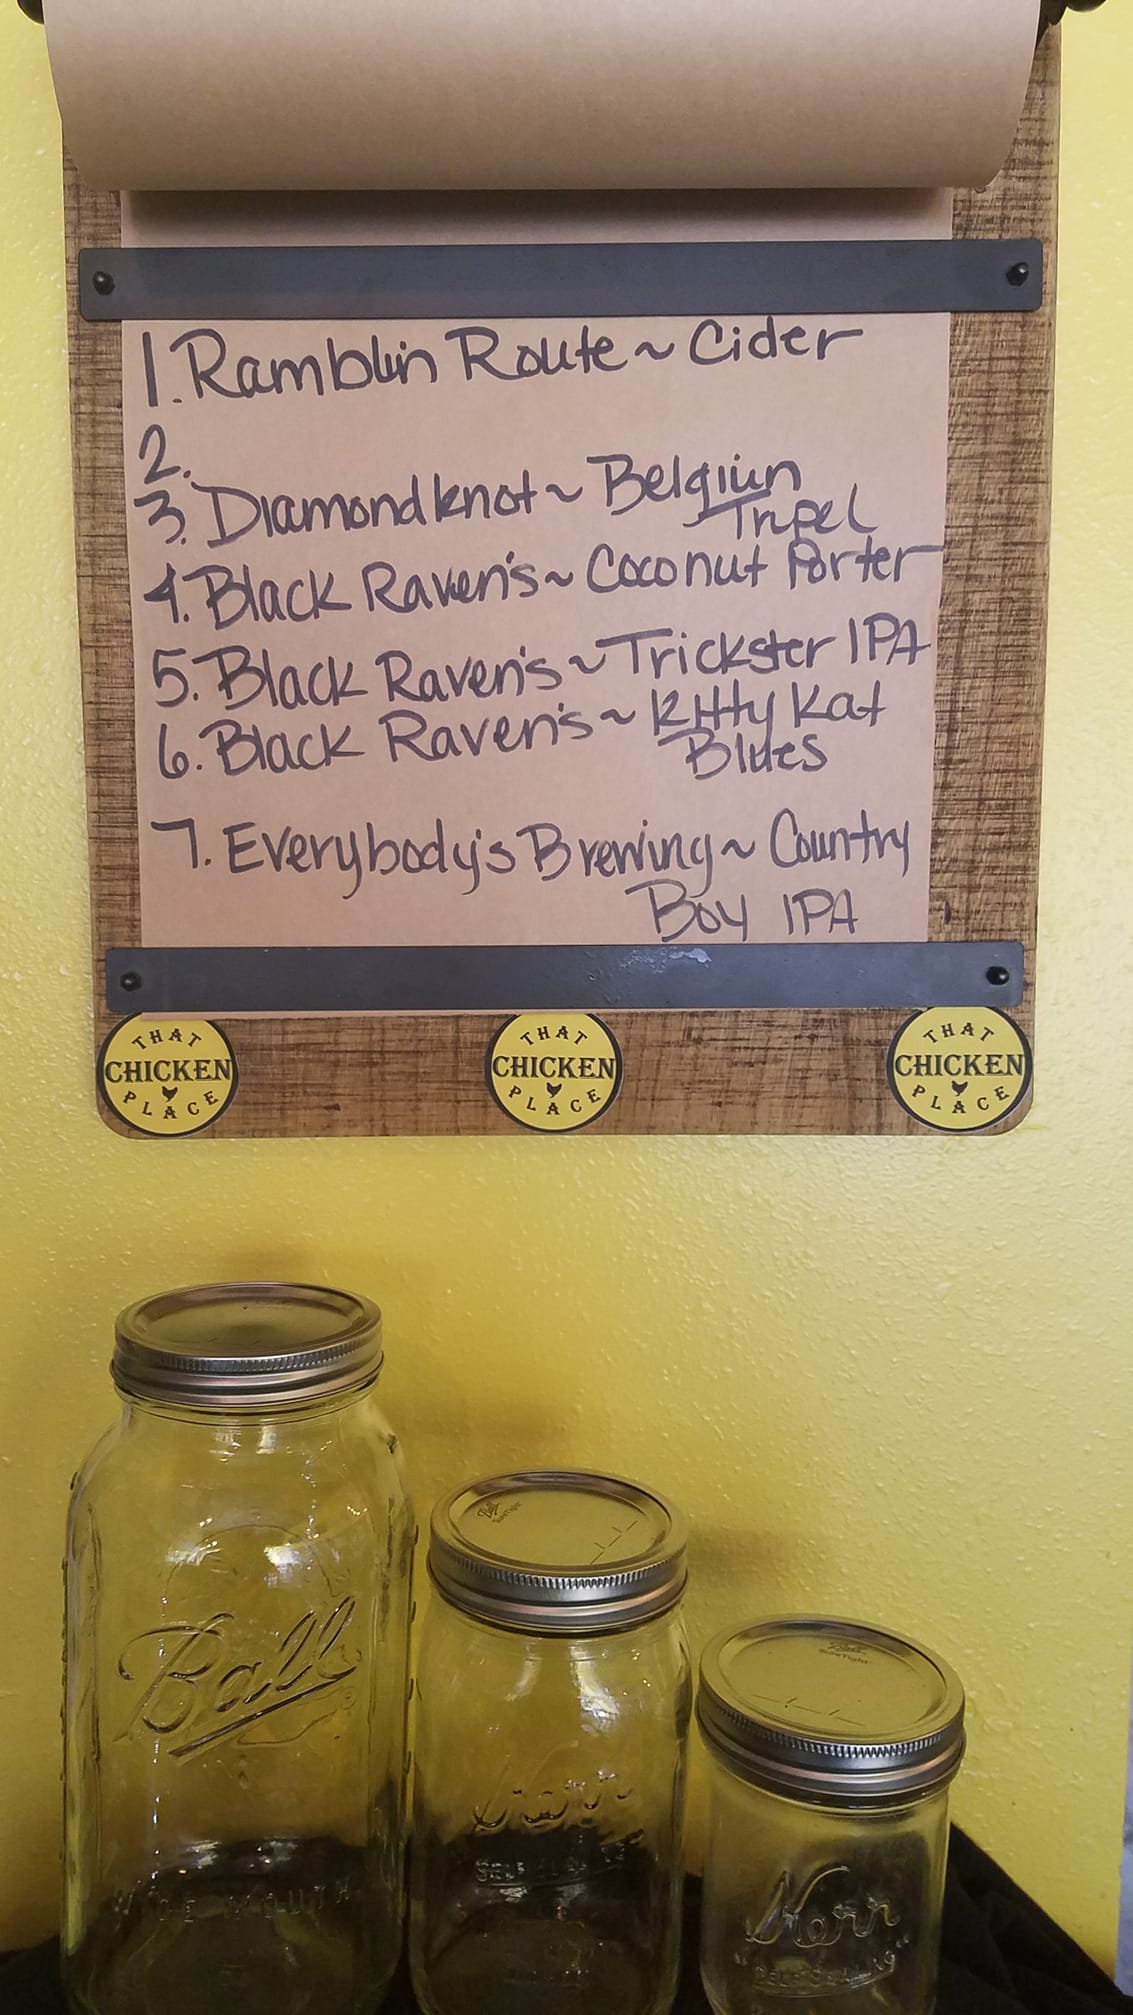 1. Ramblin Route ~ Cider
2.
3. Diamondknot ~ Belgiun
Tripel
4. Black Raven's ~ Coconut Porter
5. Black Raven's ~ Trickster IPA
6. Black Raven's ~ Kitty Kat
Blues
7. Everybody's Brewing ~ Country
Boy IPA
THAT
CHICKEN
PLACE
THAT
CHICKEN
PLACE
THAT
CHICKEN
PLACE
Ball
WIDE MOUTH
Ball
SureTight
Kerr
SELF SEALING
Ball
SureTight
Kerr
"SELF SEALING"